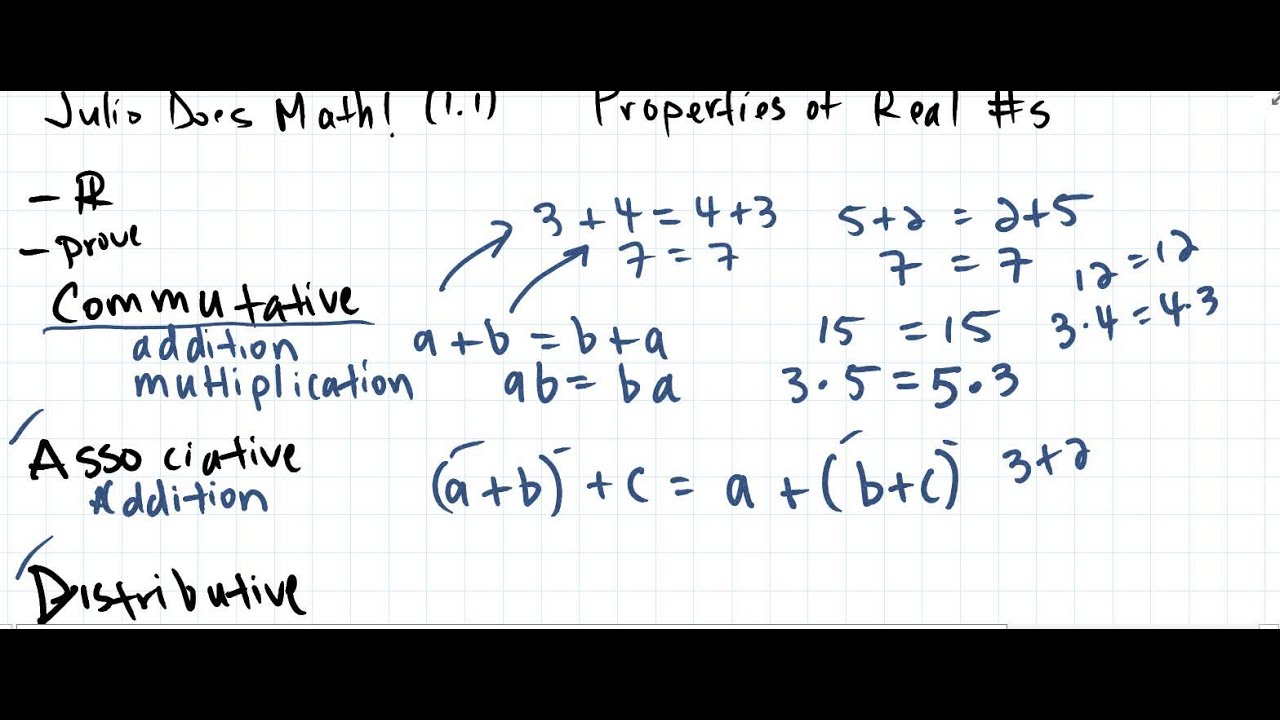 Julio Does Math! (1.1) Properties of Real #s
- ℝ
- prove
3 + 4 = 4 + 3 5 + 2 = 2 + 5
7 = 7 7 = 7 12 = 12
Commutative
addition a + b = b + a 15 = 15 3 · 4 = 4 · 3
multiplication ab = ba 3 · 5 = 5 · 3
Associative
Addition (a + b) + c = a + (b + c) 3 + 2
Distributive